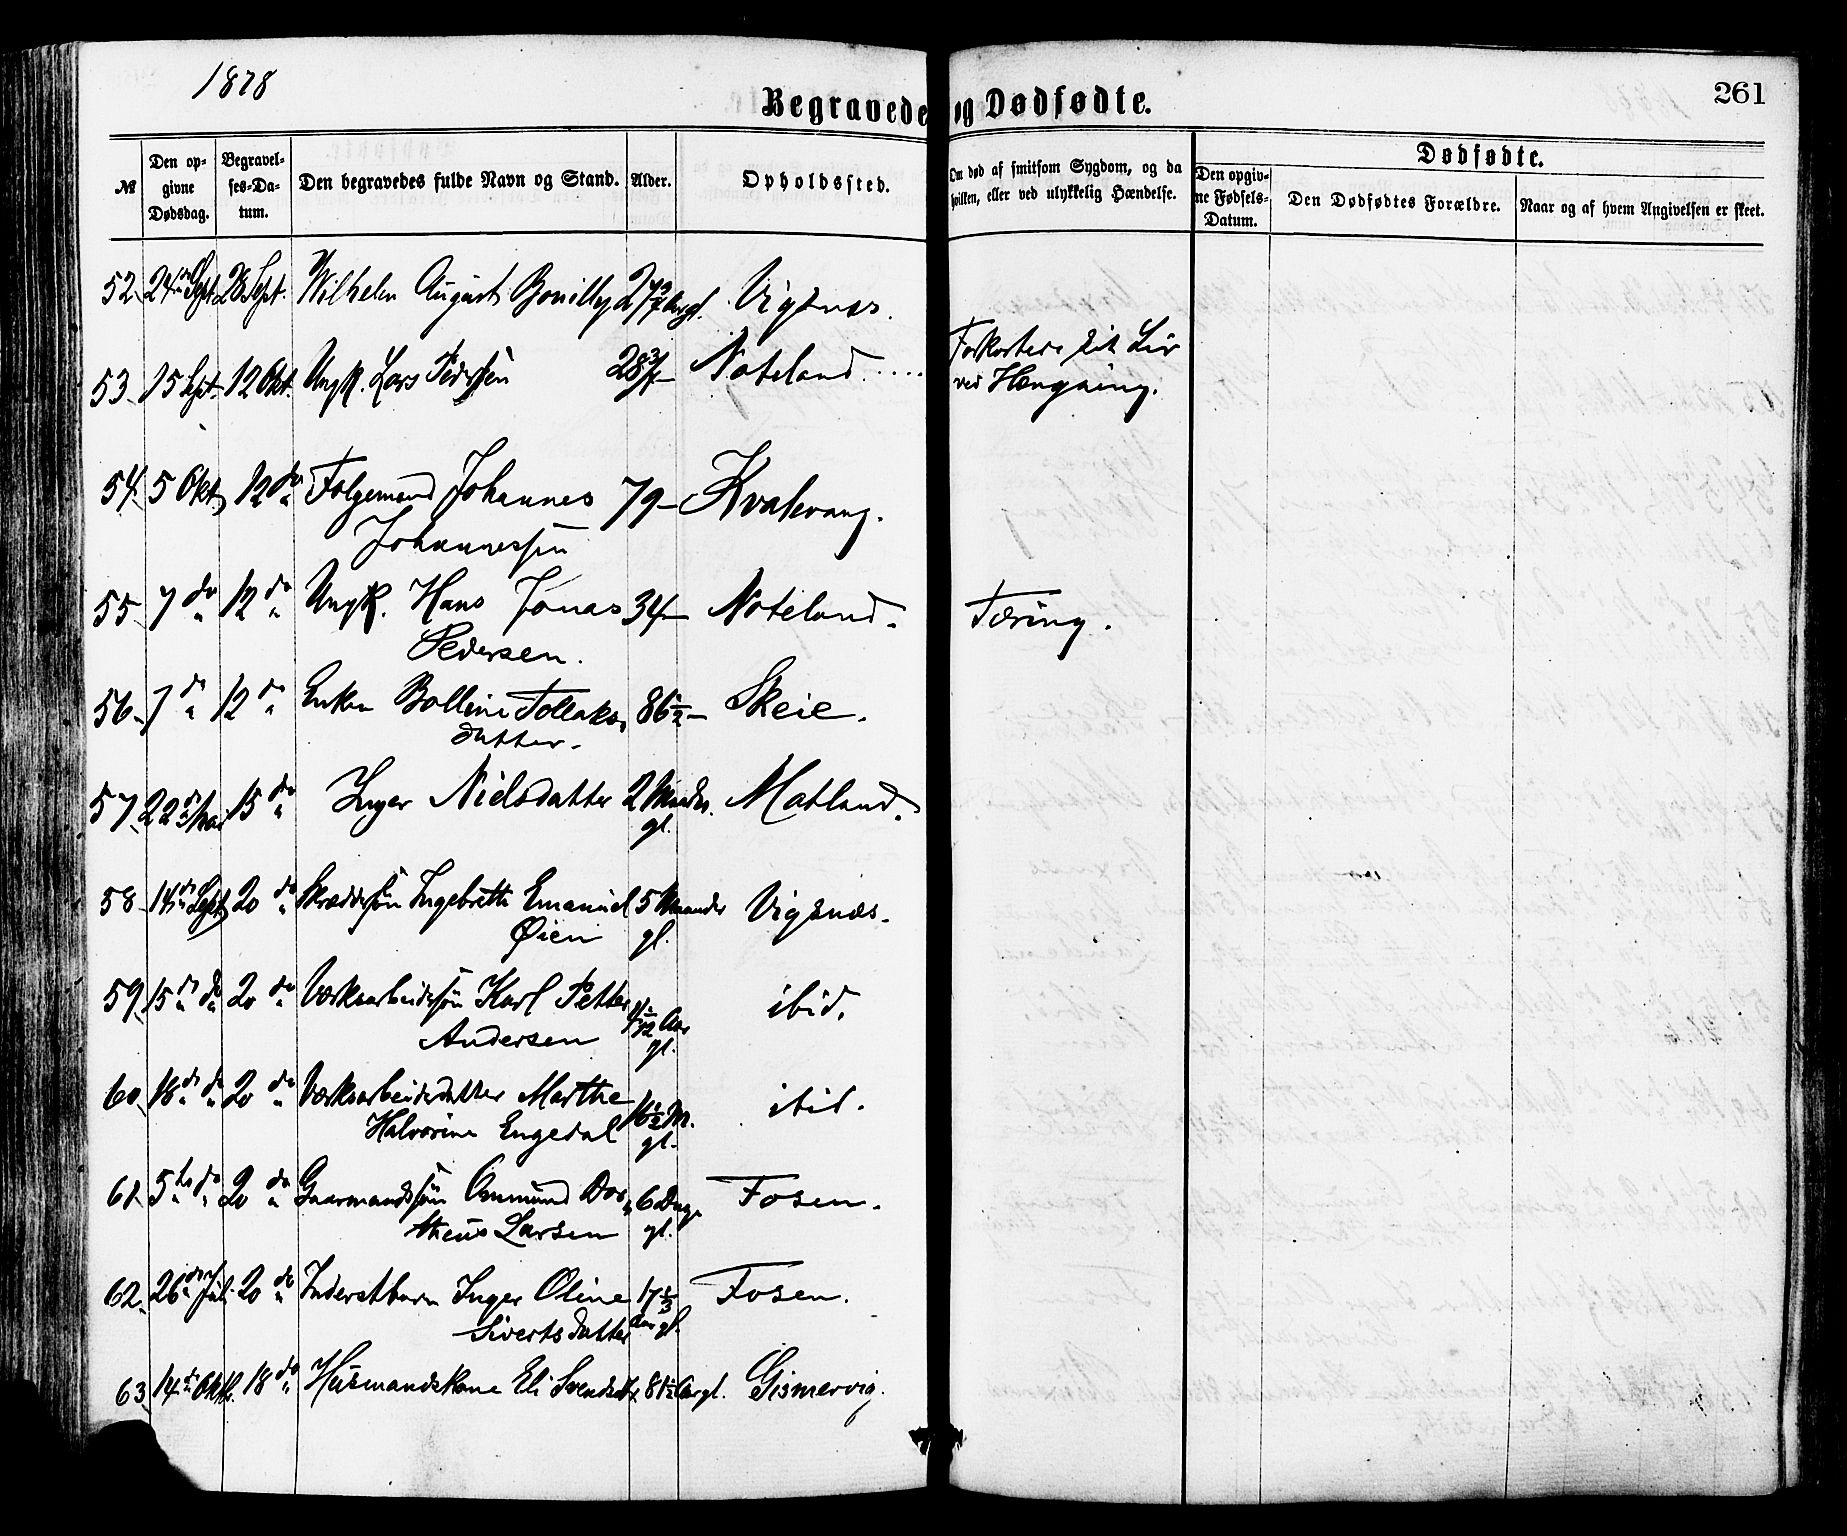 1878
Begravede og Dødfødte.
261
№
Den op-
givne
Dødsdag.
Begravel-
ses-Da-
tum.
Den begravedes fulde Navn og Stand.
Alder.
Opholdssted.
Om død af smitsom Sygdom, og da
hvilken, eller ved ulykkelig Hændelse.
Dødfødte.
Den opgiv-
ne Fødsels-
Datum.
Den Dødfødtes Forældre.
Naar og af hvem Angivelsen er skeet.
52. 24de Sept. 28 Sept. Wilhelm August 2 Aargl. Vigsnæs.
53. 15 Sept. 12 Okt. Ungk. Lars Pedersen 28 3/4 — Noteland..... Forkortede sit Liv
ved Hængning.
54. 5 Okt. 12 do Følgemand Johannes 79 — Kvalevaag.
Johannessen
55. 7 do 12 do Ungk. Hans Jonas 34 — Noteland. Tæring.
Pedersen.
56. 7 do 12 do Enken Bolline Tollaks- 86 1/2 — Skeie.
datter.
57. 22de Mai 15 do Inger Nielsdatter 2 Maaneder. Matland.
gl.
58. 14de Sept. 20 do Skræddersøn Ingebrett Emanuel 5 Maaneder Vigsnæs.
Øien gl.
59. 15de do 20 do Værksarbeidersøn Karl Petter Aar ibid.
Andersen gl.
60. 18de do 20 do Værksarbeiderdatter Marthe 16 1/2 M. ibid.
Halvorine Engedal gl.
61. 5te do 20 do Gaarmandssøn Ommund Do- 6 Dage Fosen.
theus Larsen gl.
62. 26de Juli 20 do Inderstbarn Inger Oline 17 Fosen.
Sivertsdatter gl.
63. 14de Oktbr. 18 do Husmandskone Eli Svendsdtr. 81 1/2 Aar gl. Gismervig.